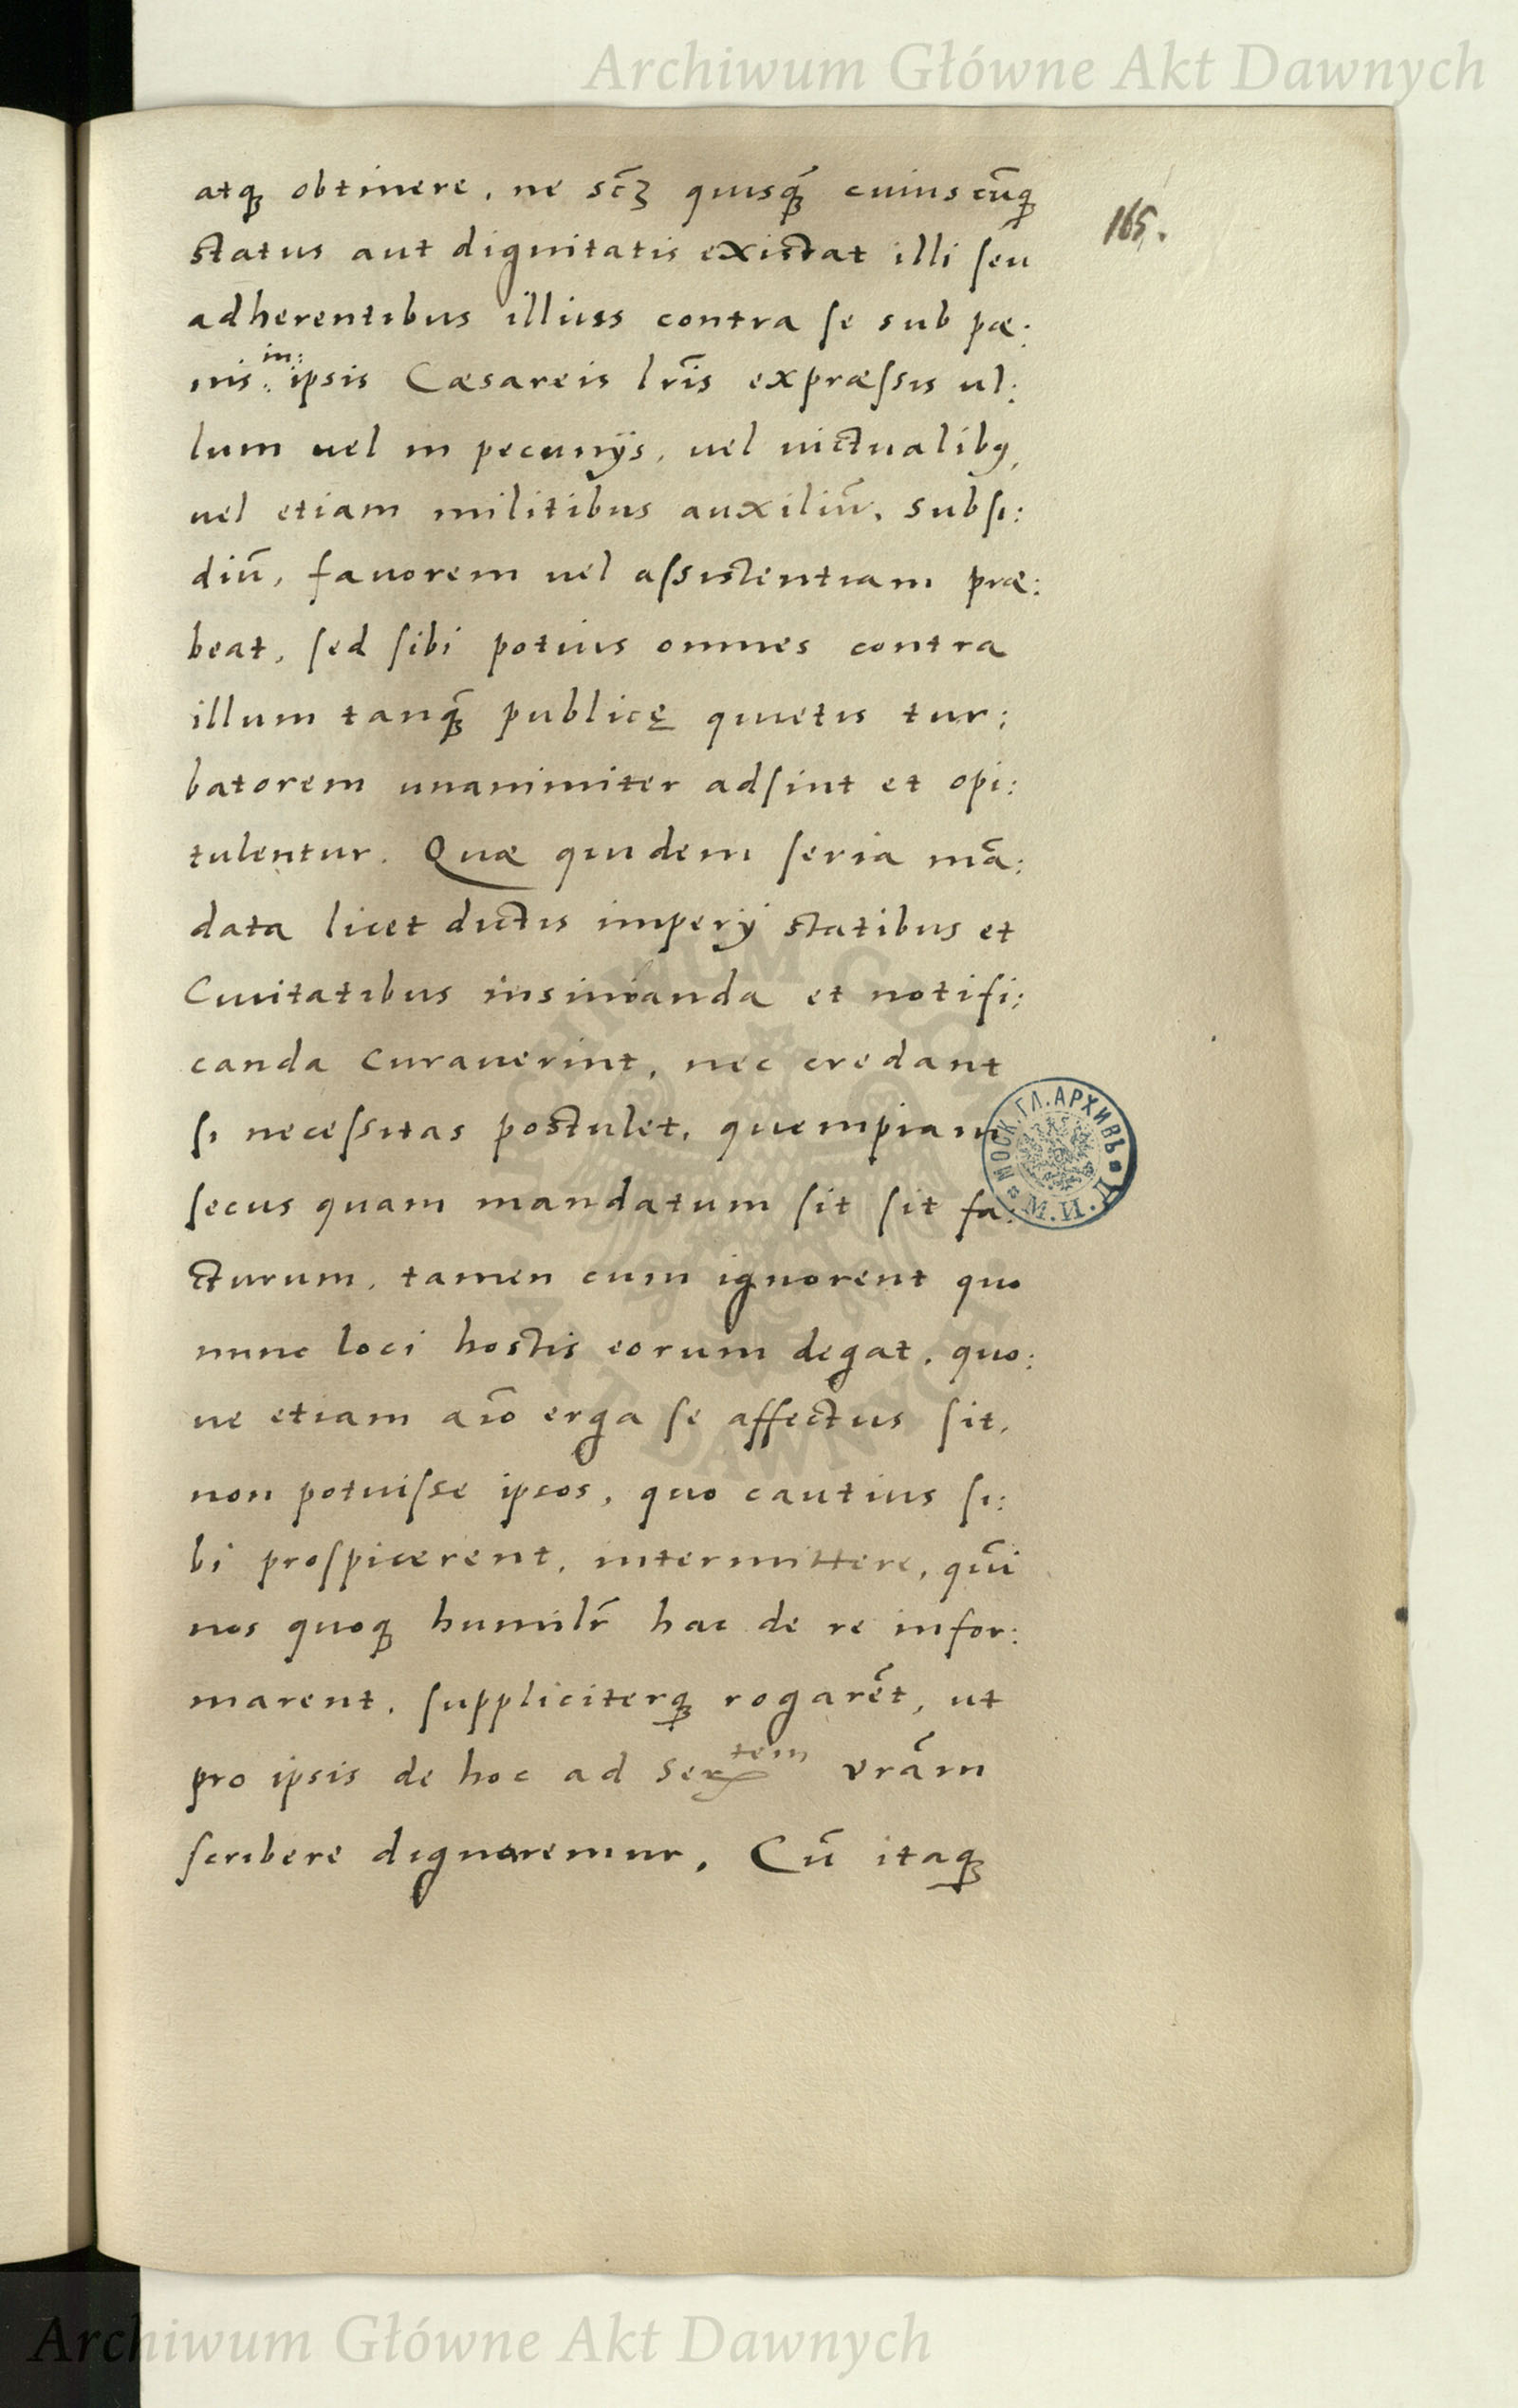 Archiwum Główne Akt Dawnych
165.
atq̃ obtinere, ne sc̃ꝫ quisq̃ cuiuscũq̃
status aut dignitatis existat illi seu
adherentibus illiuss contra se sub pæ:
nis in: ipsis Cæsareis lr̃is expræssis ul:
lum uel in pecunijs, uel uictualibꝰ,
uel etiam militibus auxiliũ, subsi:
diũ, fauorem uel assistentiam præ:
beat, sed sibi potius omnes contra
illum tanq̃ publicę quietis tur:
batorem unanimiter adsint et opi:
tulentur. Quæ quidem seria mã:
data licet dictis imperij statibus et
Ciuitatibus insinuanda et notifi:
canda curauerint, nec credant
si necessitas postulet, quempiam
secus quam mandatum sit sit fa:
cturum, tamen cum ignorent quo
nunc loci hostis eorum degat, quo:
ue etiam aĩo erga se affectus sit,
non potuisse ipsos, quo cautius si:
bi prospicerent, intermittere, quĩ
nos quoq̃ humilr̃ hac de re infor:
marent, suppliciterq̃ rogarẽt, ut
pro ipsis de hoc ad Sertem vrãm
scribere dignaremur. Cũ itaq̃
МОСК. ГЛ. АРХИВЪ М. И. Д.
ARCHIWUM GŁÓWNE AKT DAWNYCH
Archiwum Główne Akt Dawnych